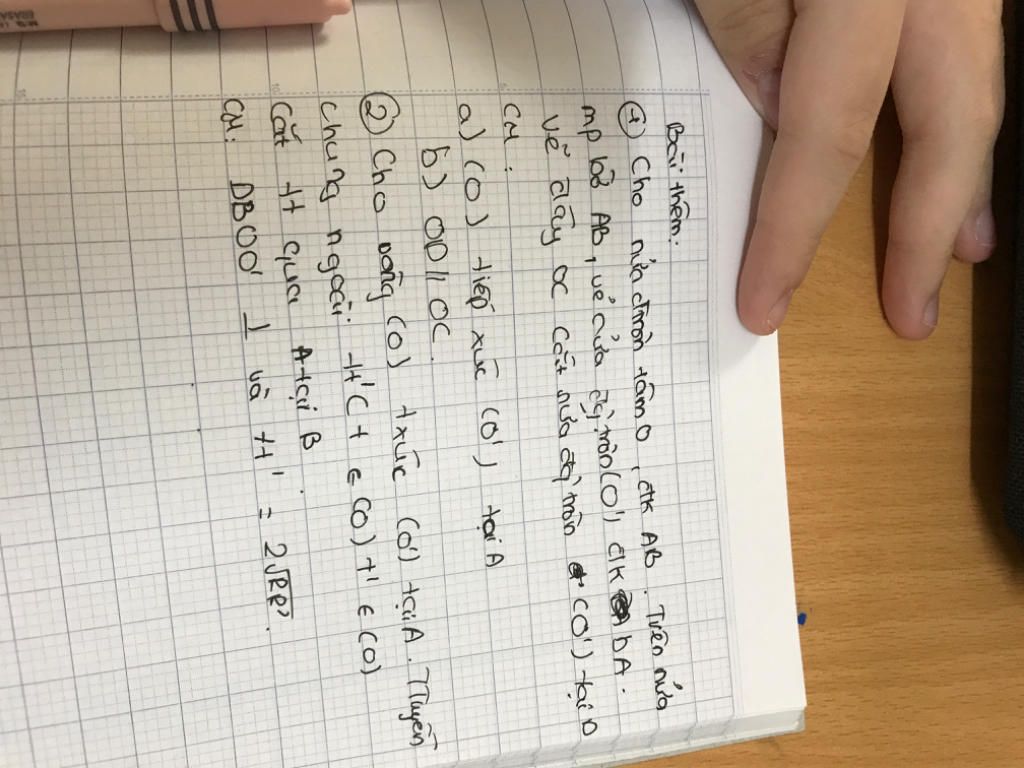 Bài thêm:
① Cho nửa đ̛tròn tâm O, đk AB. Trên nửa
mp bờ AB, vẽ nửa đg tròn (O'), đk OA.
Vẽ dây AC cắt nửa đg tròn (O') tại D
CM:
a) (O) tiếp xúc (O') tại A
b) OD // OC.
② Cho (O) txúc (O') tại A. Tuyến
chung ngoài: TT' (T ∈ (O) T' ∈ (O)
Cắt tt qua A tại B.
CM: DBOO' ⊥ và TT' = 2√RR'.